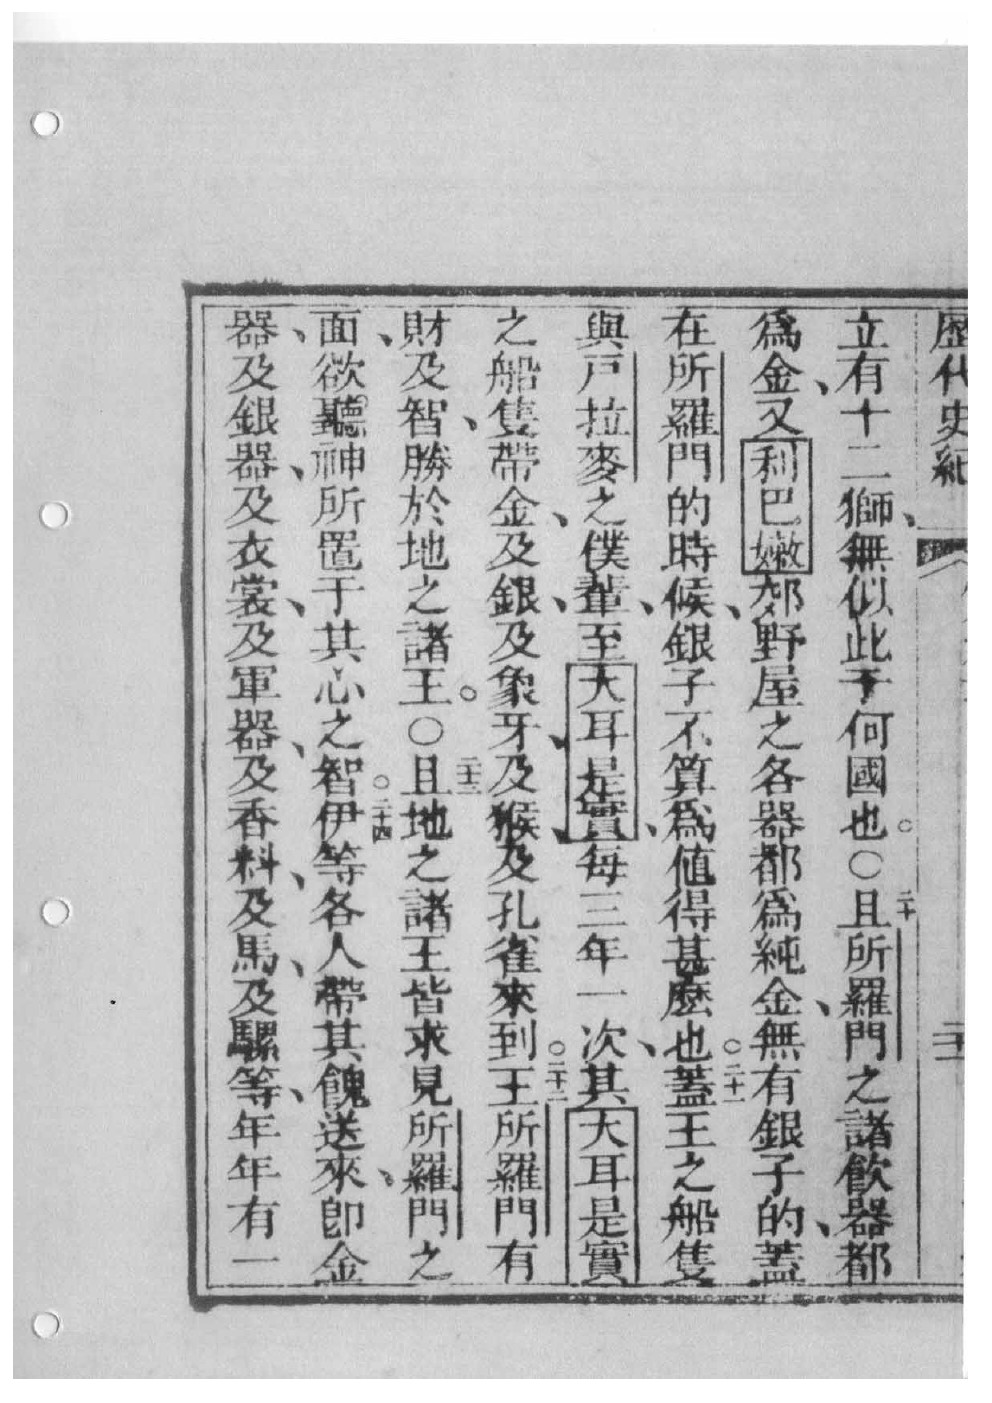 歷代史紀
立有十二獅、無似此于何國也。○二十且所羅門之諸飲器都
爲金、又利巴嫩郊野屋之各器都爲純金、無有銀子的、蓋
在所羅門的時候、銀子不算爲值得甚麼也。○二十一蓋王之船隻
與戶拉麥之僕輩、至大耳是實、每三年一次、其大耳是實
之船隻帶金、及銀、及象牙、及猴、及孔雀來到。○二十二王所羅門有
財及智、勝於地之諸王。○二十三且地之諸王皆求見所羅門之
面、欲聽神所置于其心之智。○二十四伊等各人帶其餽送來、卽金
器、及銀器、及衣裳、及軍器、及香料、及馬、及騾等、年年有一